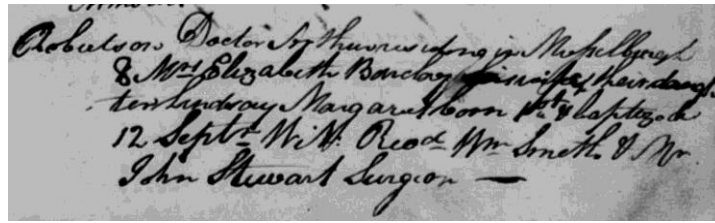 Robertson Doctor Arthur residing in Musselburgh
& Mrs Elizabeth Barclay his wife their daugh-
ter Lindsay Margaret born 1st & baptized
12 Septr. Wit. Revd. Wm Smith & Mr
John Stewart Surgeon —